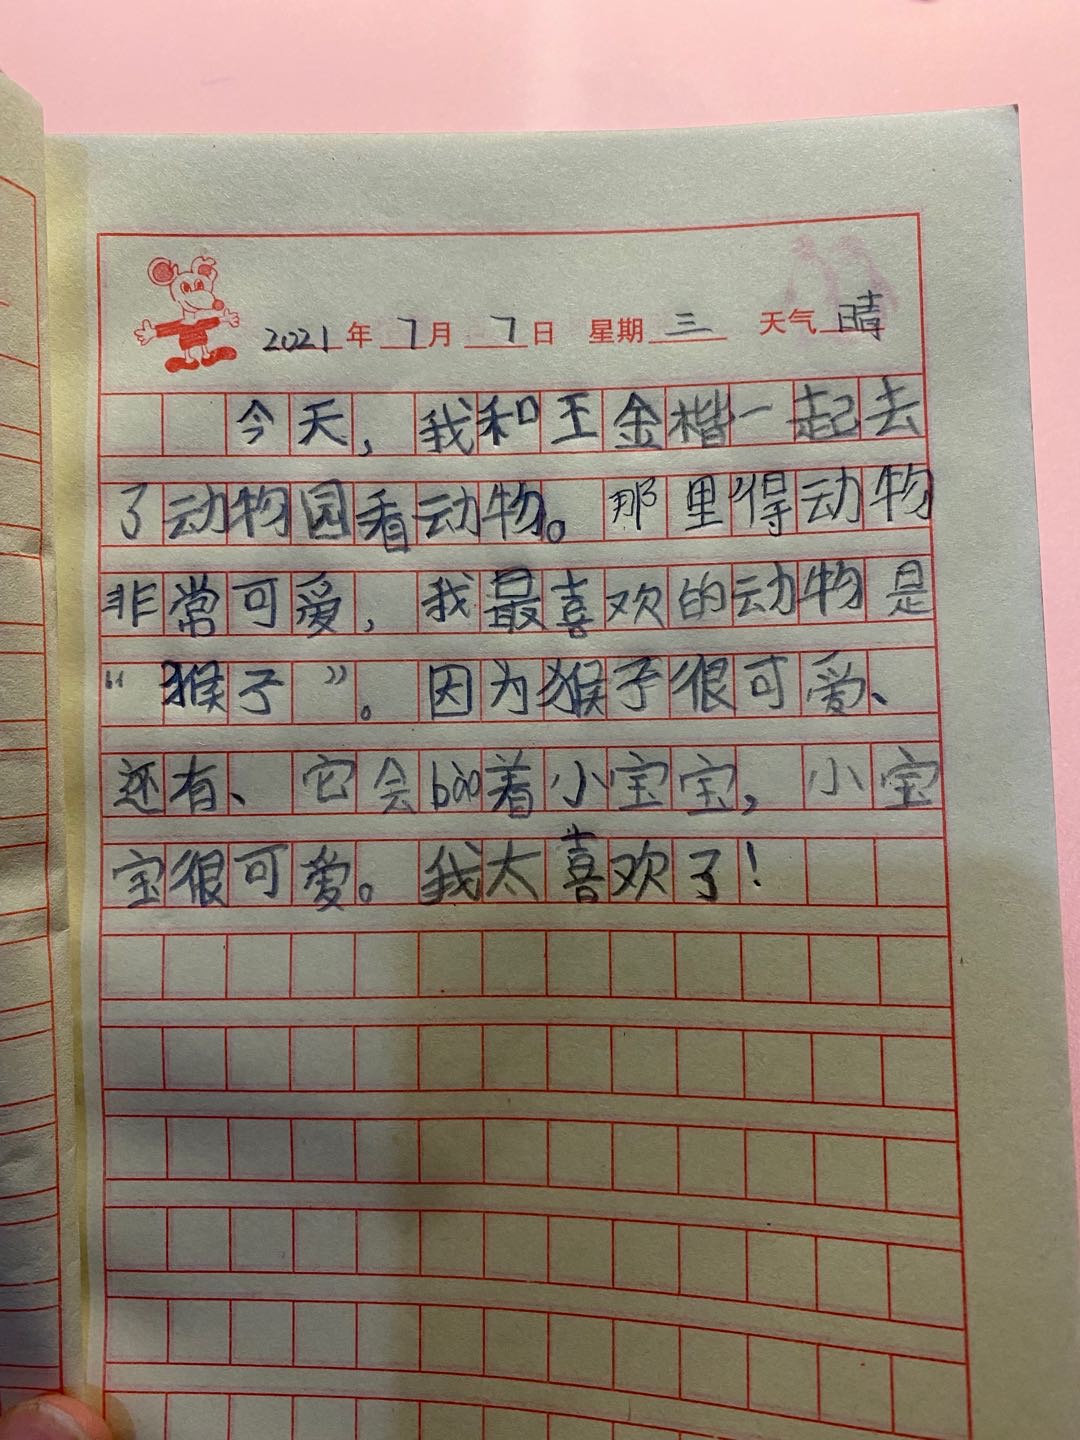 2021年7月7日 星期三 天气晴
今天，我和王金楷一起去
了动物园看动物。那里得动物
非常可爱，我最喜欢的动物是
“猴子”。因为猴子很可爱、
还有、它会bào着小宝宝，小宝
宝很可爱。我太喜欢了！